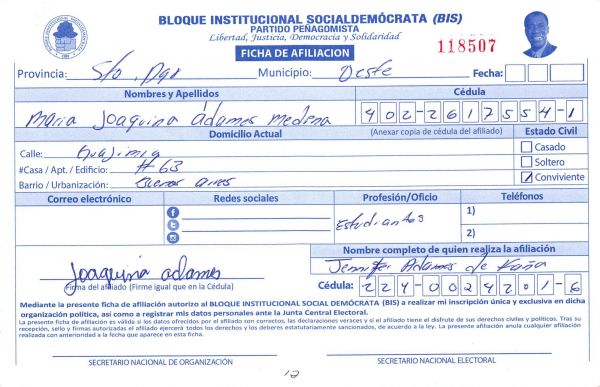 BLOQUE INSTITUCIONAL SOCIALDEMÓCRATA (BIS)
PARTIDO PEÑAGOMISTA
Libertad, Justicia, Democracia y Solidaridad
FICHA DE AFILIACION
118507
Provincia: Sto. Dgo Municipio: Oeste Fecha:
Nombres y Apellidos Cédula
Maria Joaquina Adames Medina 402-2617554-1
Domicilio Actual (Anexar copia de cédula del afiliado) Estado Civil
Calle: Guajimia Casado
#Casa / Apt. / Edificio: #63 Soltero
Barrio / Urbanización: Buenos aires Conviviente
Correo electrónico Redes sociales Profesión/Oficio Teléfonos
Estudiante 1)
2)
Nombre completo de quien realiza la afiliación
Joaquina adames Jennifer Adames de
Firma del afiliado (Firme igual que en la Cédula) Cédula: 224-0024201-6
Mediante la presente ficha de afiliación autorizo al BLOQUE INSTITUCIONAL SOCIAL DEMÓCRATA (BIS) a realizar mi inscripción única y exclusiva en dicha
organización política, así como a registrar mis datos personales ante la Junta Central Electoral.
La presente ficha de afiliación es válida si los datos ofrecidos por el afiliado son correctos, las declaraciones veraces y si el afiliado tiene el disfrute de sus derechos civiles y políticos. Tras su
recepción, sello y firmas autorizadas el afiliado ejercerá todos los derechos y los deberes estatutariamente sancionados, de acuerdo a la ley. La presente afiliación anula cualquier afiliación
realizada con anterioridad a la fecha que aparece en esta ficha.
SECRETARIO NACIONAL DE ORGANIZACIÓN SECRETARIO NACIONAL ELECTORAL
12